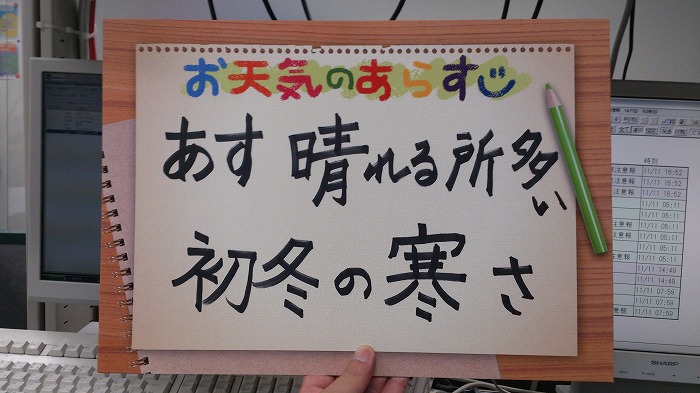 お天気のあらすじ
あす 晴れる所多い
初冬の寒さ
時刻
注意報 11/11 16:52
注意報 11/11 16:52
注意報 11/11 16:52
11/11 05:11
11/11 05:11
注意報 11/11 05:11
11/11 05:11
11/11 14:49
11/11 14:49
11/11 07:59
11/11 07:59
注意報 11/11 07:59
SHARP